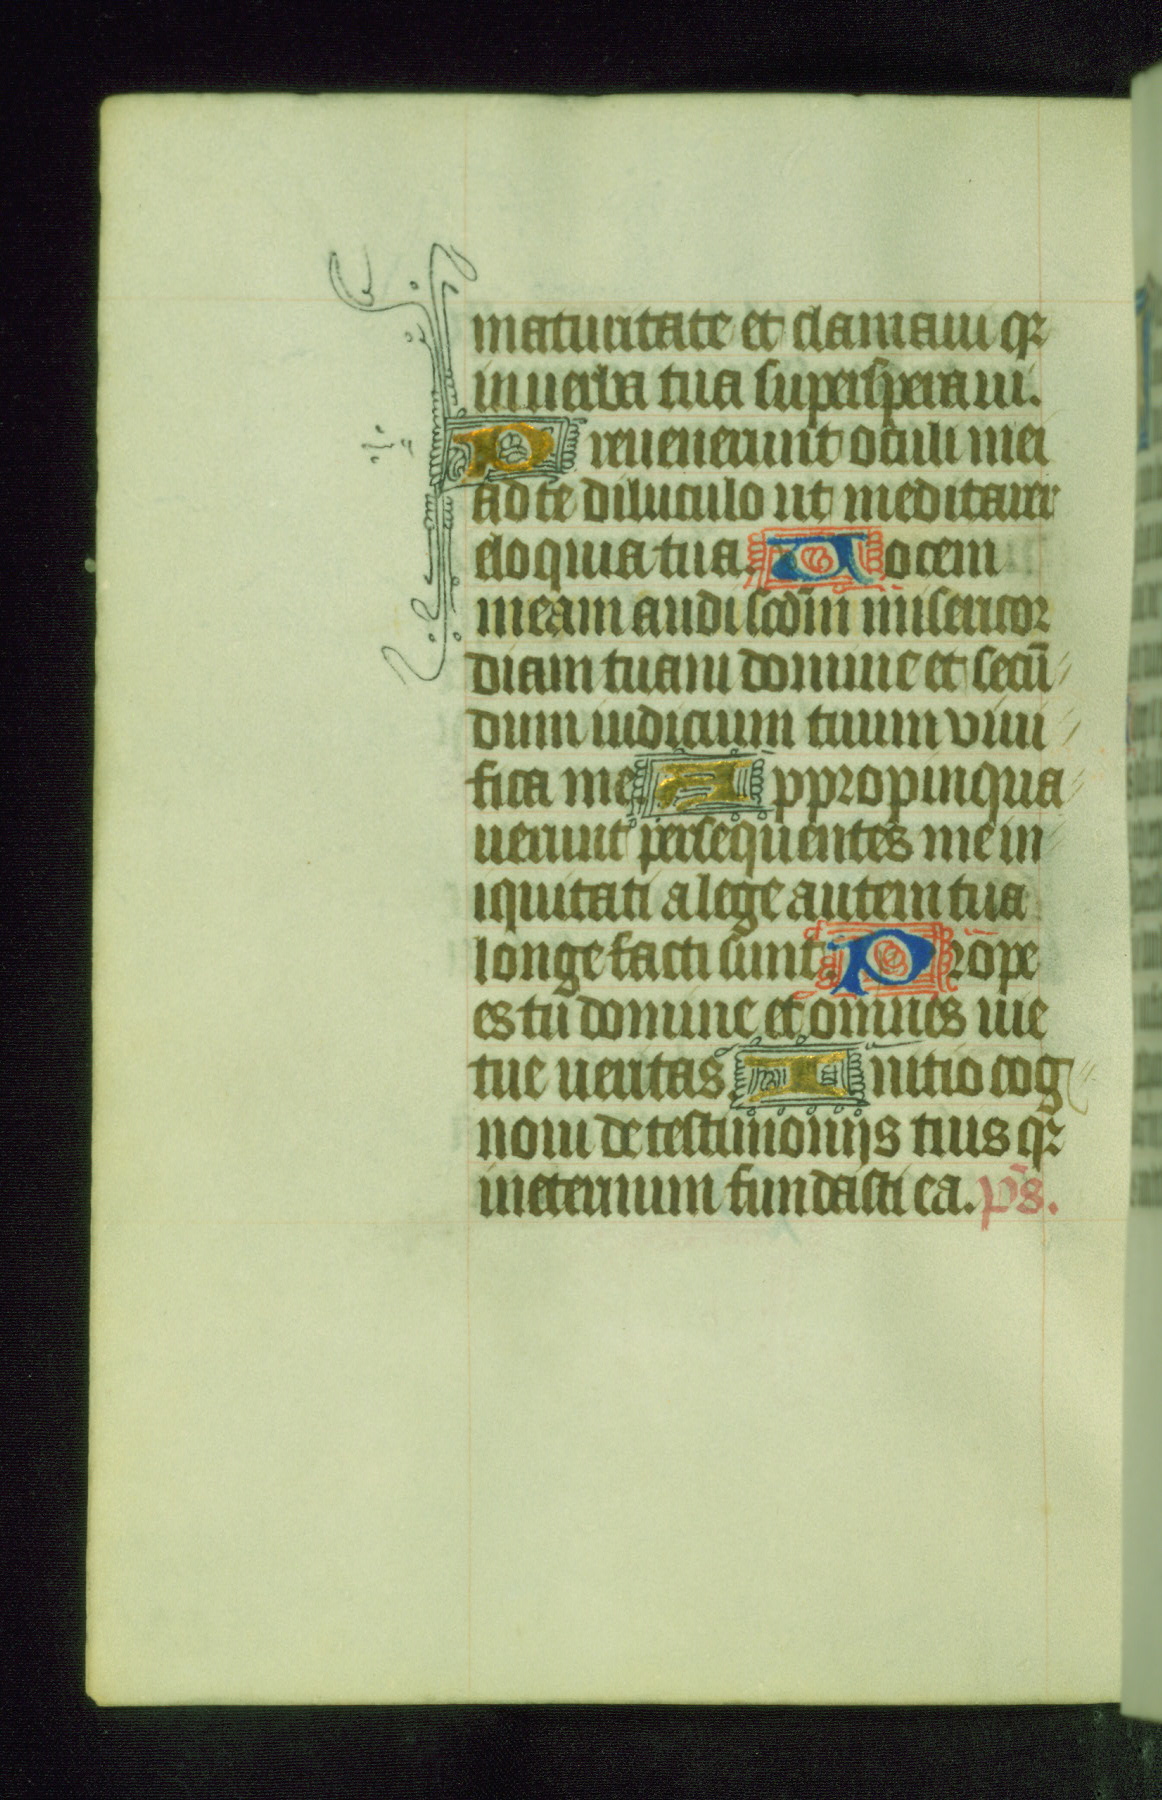 maturitate et clamaui qꝛ
in uerba tua supersperaui.
Preuenerunt oculi mei
ad te diluculo ut meditarer
eloquia tua. Uocem
meam audi scd̄m misericor
diam tuam domine et secū
dum iudicium tuum viui
fica me. Appropinqua
uerunt persequentes me in
iquitati a lege autem tua
longe facti sunt. Prope
es tu domine et omnes uie
tue ueritas. Initio cog
noui de testimonijs tuis qꝛ
in eternum fundasti ea. p̄s.